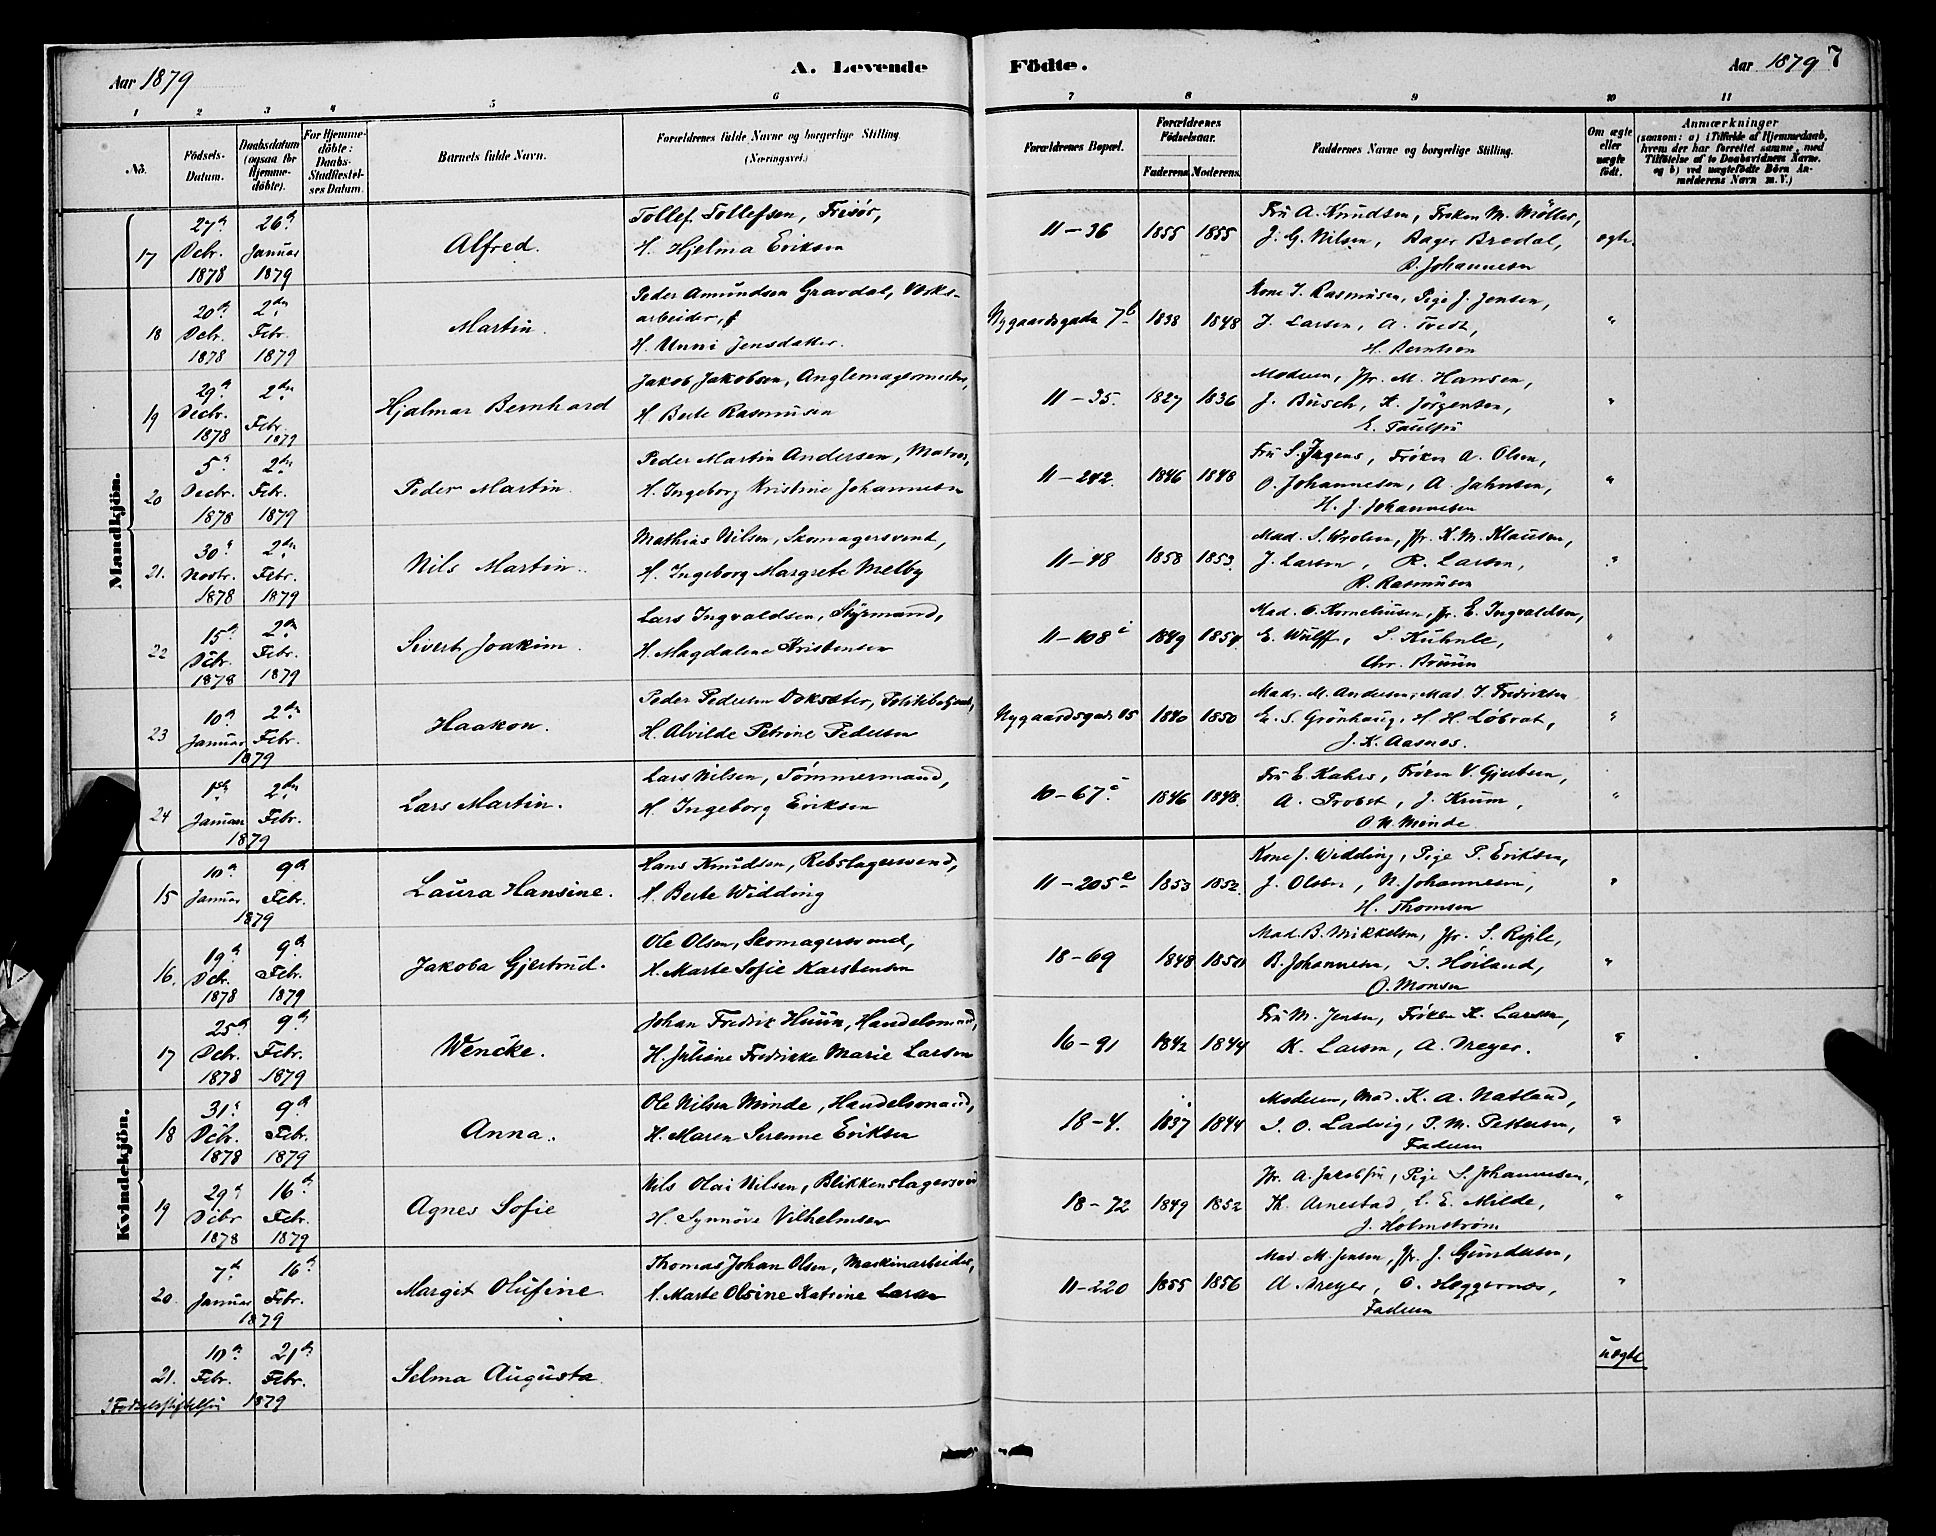 Aar 1879
A. Levende Födte.
Aar 1879 7
1 2 3 4 5 6 7 8 9 10 11
No. Födsels-Datum. Daabsdatum (ogsaa for Hjemmedöbte). For Hjemmedöbte: Daabs-Stadfæstelses Datum. Barnets fulde Navn. Forældrenes fulde Navne og borgerlige Stilling. (Næringsvei.) Forældrenes Bopæl. Forældrenes Födselsaar. Faderens Moderens. Faddernes Navne og borgerlige Stilling. Om ægte eller uægte födt. Anmærkninger (saasom: a) i Tilfælde af Hjemmedaab, hvem der har forrettet samme, med Tilföielse af to Daabsvidners Navne. og b) ved uægtefödte Börn Anmelderens Navn m. V.)
Mandkjön.
17 27de Decbr. 1878 26de Januar 1879 Alfred. Tollef Tollefsen, Frisør,
H. Hjelma Eriksen 11-36 1855 1855 Fru A. Knudsen, Frøken M. Möller,
J. G. Nilsen, Bager Bredal,
Johannesen ægte
18 20de Decbr. 1878 2den Febr. 1879 Martin. Peder Amundsen Gravdal, Værks-
arbeider,
H. Unni Jensdatter. Nygaardsgade 7b 1838 1848 Kone I. Rasmusen, Pige J. Jensen,
J. Larsen, A. Tvedt,
H. Berntsen "
19 29de Decbr. 1878 2den Febr. 1879 Hjalmar Bernhard Jakob Jakobsen, Anglemagermester,
H. Berte Rasmusen 11-35. 1827 1836 Moderen, Jfr. M. Hansen,
J. Busch, K. Jörgensen,
E. Paulsen "
20 5te Decbr. 1878 2den Febr. 1879 Peder Martin. Peder Martin Andersen, Matros,
H. Ingeborg Kristine Johannesen 11-242. 1846 1848 Fru S. Jrgens, Frøken A. Olsen,
O. Johannesen, A. Jahnsen,
H. J. Johannesen "
21. 30te Novbr. 1878 2den Febr. 1879 Nils Martin. Mathias Nilsen, Skomagersvend,
H. Ingeborg Margrete Melby 11-48 1858 1853. Mad. S. Krolsen, Jfr. K. M. Klausen,
J. Larsen, R. Larsen,
R. Rasmusen "
22 15de Decbr. 1878 2den Febr. 1879 Sivert Joakim. Lars Ingvaldsen, Styrmand,
H. Magdalene Kristensen 11-108i 1849 1854. Mad. O. Korneliusen, Jfr. E. Ingvaldsen,
E. Wulff, S. Kuhnle,
Chr. Bruun "
23 10de Januar Febr. 2den 1879 Haakon. Peder Pedersen Doksæter, Politibetjent,
H. Alvilde Petrine Pedersen Nygaardsgade 15 1840 1850 Mad. M. Andersen, Mad. J. Fredriksen
E. S. Grönhaug, H. H. Löbrot,
J. K. Aasnes. "
24 1ste Januar 2den Febr. 1879 Lars Martin. Lars Nilsen, Tömmermand,
H. Ingeborg Eriksen 10-67i 1846 1848. Fru E. Kahrs, Frøken V. Gjertsen,
A. Probst, J. Krum,
O. N. Minde. "
Kvindekjön.
15 10de Januar 9de Febr. 1879 Laura Hansine. Hans Knudsen, Rebslagersvend,
H. Berte Widding 11-205e 1853 1852. Kone J. Widding, Pige P. Eriksen,
J. Olsen, N. Johannesen,
H. Thomsen "
16. 19de Decbr. 1878 9de Febr. 1879 Jakoba Gjertrud. Ole Olsen, Skomagersvend,
H. Marte Sofie Karstensen 18-69 1848 1850 Mad. B. Mikkelsen, Jfr. S.
B. Johannesen, I. Höiland,
O. Monsen "
17 25de Decbr. 1878 9de Febr. 1879 Wencke. Johan Fredrik Huun, Handelsmand,
H. Juliane Fredrikke Marie Larsen 16-91 1842 1844 Fru M. Jensen, Frøken K. Larsen,
K. Larsen, A. Meyer. "
18 31te Decbr. 1878 9de Febr. 1879 Anna. Ole Nilsen Minde, Handelsmand,
H. Maren Serenne Eriksen 18-4. 1837 1844 Moderen, Mad. K. A. Natland,
I. O. Ladvig, P. M. Pettersen,
Faderen "
19 29de Decbr 1878 16de Febr. 1879 Agnes Sofie Nils Olai Nilsen, Blikkenslagersvd
H. Synnöve Vilhelmsen 18-72 1849 1852 Jfr. A. Jakobsen, Pige S. Johannesen,
Th. Arnestad, L. E. Milde,
J. Holmström "
20. 7de Januar 16de Febr. 1879 Margit Olufine. Thomas Johan Olsen, Maskinarbeider,
H. Marte Olsine Katrine Larsen 11-220 1855 1856 Mad. M. Jensen, Jfr. J. Gundersen,
A. Meyer, O. Heggernæs,
Faderen "
21. 10de Febr. 21de Febr. 1879 Selma Augusta. uægte
I Fødselsstiftelsen